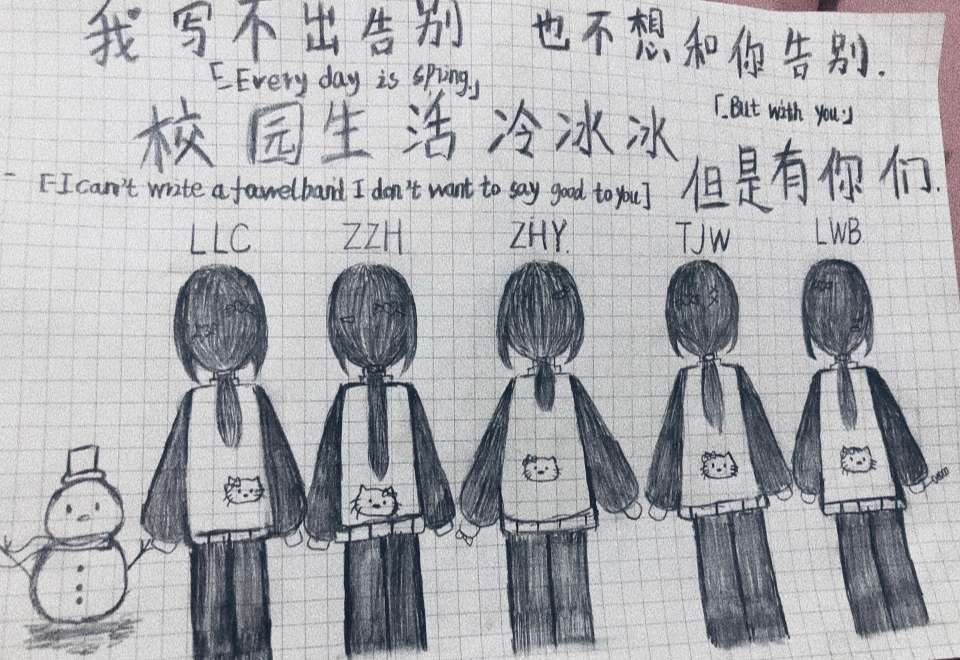 我写不出告别 也不想和你告别.
「Every day is spring.」
校园生活冷冰冰
「But with you.」
[I can't write a farewelband I don't want to say good to you]
但是有你们.
LLC ZZH ZHY. TJW LWB